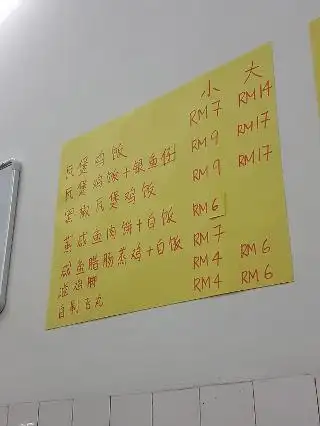 小 大
瓦煲鸡饭 RM7 RM14
瓦煲鸡饭+银鱼仔 RM9 RM17
黑椒瓦煲鸡饭 RM9 RM17
蒸咸鱼肉饼+白饭 RM6
咸鱼腊肠蒸鸡+白饭 RM7
滷鸡脚 RM4 RM6
自制 RM4 RM6